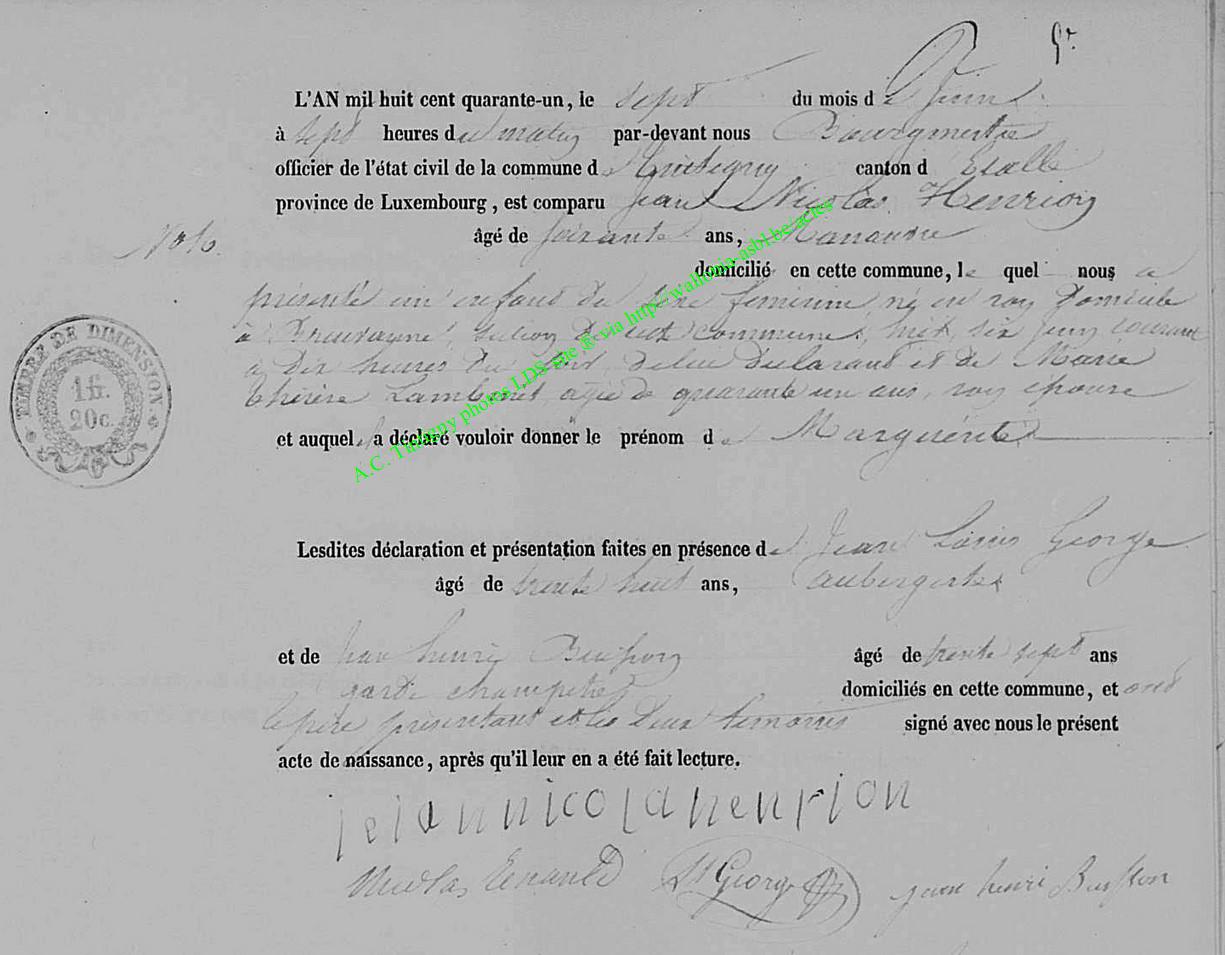 L'AN mil huit cent quarante-un, le sept du mois de Juin
à sept heures du matin par-devant nous Bourgmestre
officier de l'état civil de la commune de Tintigny canton d Etalle
province de Luxembourg, est comparu Jean Nicolas Henrion
âgé de soixante ans, Manœuvre
domicilié en cette commune, le quel nous a
présenté un enfant du sexe feminin, né en son domicile
à section de cette commune, six courant
à dix heures du soir, de lui déclarant et de Marie
Thérèse Lambinet, agée de quarante un ans son épouse
et auquel il a déclaré vouloir donner le prénom de Marguerite
TIMBRE DE DIMENSION
1 fr.
20c.
Lesdites déclaration et présentation faites en présence de Jean Louis George
âgé de trente huit ans, aubergiste
et de jean henri Buisson âgé de trente sept ans
garde champetre domiciliés en cette commune, et ont
le père présentant et les deux temoins signé avec nous le présent
acte de naissance, après qu'il leur en a été fait lecture.
jejannicolahenrion
Nicolas George jean henri Buisson
A.C. Tintigny photos LDS site ® via http://wallonia-asbl.be/actes